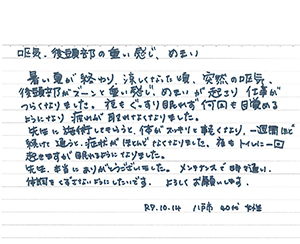 嘔気、後頭部の重い感じ、めまい
暑い夏が終わり、涼しくなった頃、突然の嘔気、
後頭部がズーンと重い感じ、めまいが起こり仕事が
つらくなりました。夜もぐっすり眠れず何回も目覚める
ようになり疲れが取れなくなりました。
先生に施術してもらうと、体がスッキリと軽くなり、一週間ほど
続けて通うと、症状がほとんどなくなりました。夜もトイレに一回
起きますが眠れるようになりました。
先生、本当にありがとうございました。メンテナンスで時々通い、
体調をくずさないようにしたいです。よろしくお願いします。
R7.10.14 八 市 60代 女性